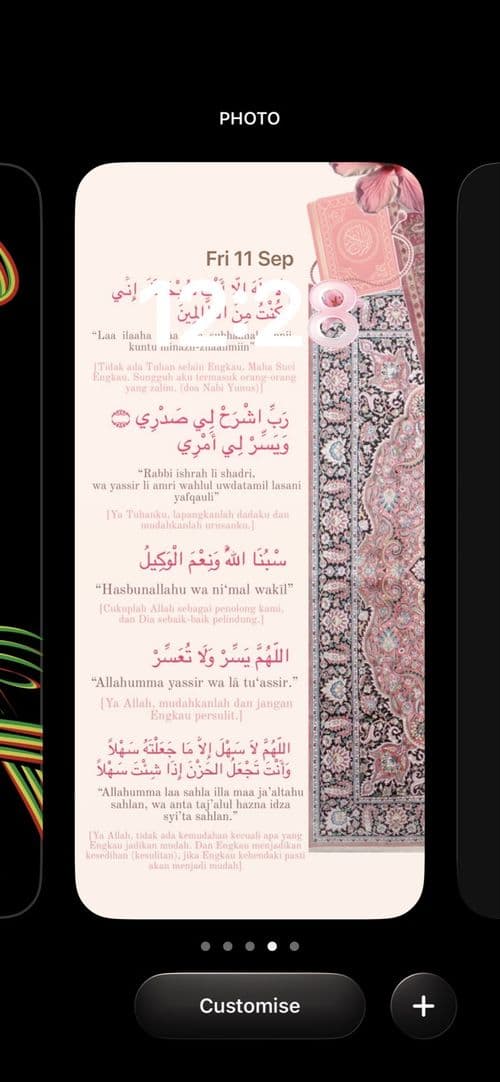 PHOTO
Fri 11 Sep
12:28
إِلَّا إِنِّي
كُنْتُ مِنَ
“Laa ilaaha
kuntu minazh-zhaalimiin”
[Tidak ada Tuhan selain Engkau, Maha Suci
Engkau, Sungguh aku termasuk orang-orang
yang zalim. (doa Nabi Yunus)]
رَبِّ اشْرَحْ لِي صَدْرِي
وَيَسِّرْ لِي أَمْرِي
“Rabbi ishrah li shadri,
wa yassir li amri wahlul uwdatamil lasani
yafqauli”
[Ya Tuhanku, lapangkanlah dadaku dan
mudahkanlah urusanku.]
سْبُنَا اللهُ وَنِعْمَ الْوَكِيلُ
“Hasbunallahu wa ni‘mal wakīl”
[Cukuplah Allah sebagai penolong kami,
dan Dia sebaik-baik pelindung.]
اللَّهُمَّ يَسِّرْ وَلَا تُعَسِّرْ
“Allahumma yassir wa lā tu‘assir.”
[Ya Allah, mudahkanlah dan jangan
Engkau persulit.]
اللَّهُمَّ لاَ سَهْلَ إِلاَّ مَا جَعَلْتَهُ سَهْلاً
وَأَنْتَ تَجْعَلُ الْحَزْنَ إِذَا شِئْتَ سَهْلاً
“Allahumma laa sahla illa maa ja’altahu
sahlan, wa anta taj’alul hazna idza
syi’ta sahlan.”
[Ya Allah, tidak ada kemudahan kecuali apa yang
Engkau jadikan mudah. Dan Engkau menjadikan
kesedihan (kesulitan), jika Engkau kehendaki pasti
akan menjadi mudah]
Customise